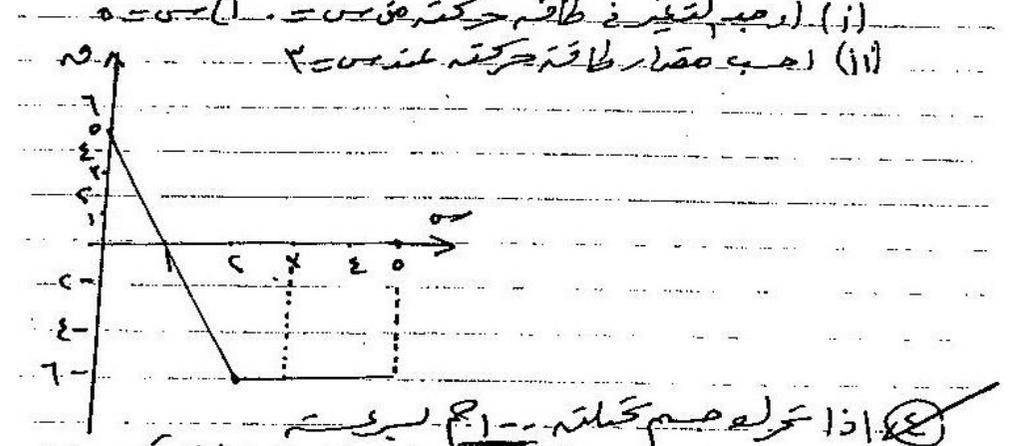 (i) اوجد التغير في طاقة حركته من س = ٠ الى س = ٥
(ii) احسب مقدار طاقة حركته عند س = ٣
ق
٦
٥
٤
٣
٢
١
س
١ ٢ ٣ ٤ ٥
٢-
٤-
٦-
٤ اذا تحرك جسم كتلته ١٠٠ جم بسرعة